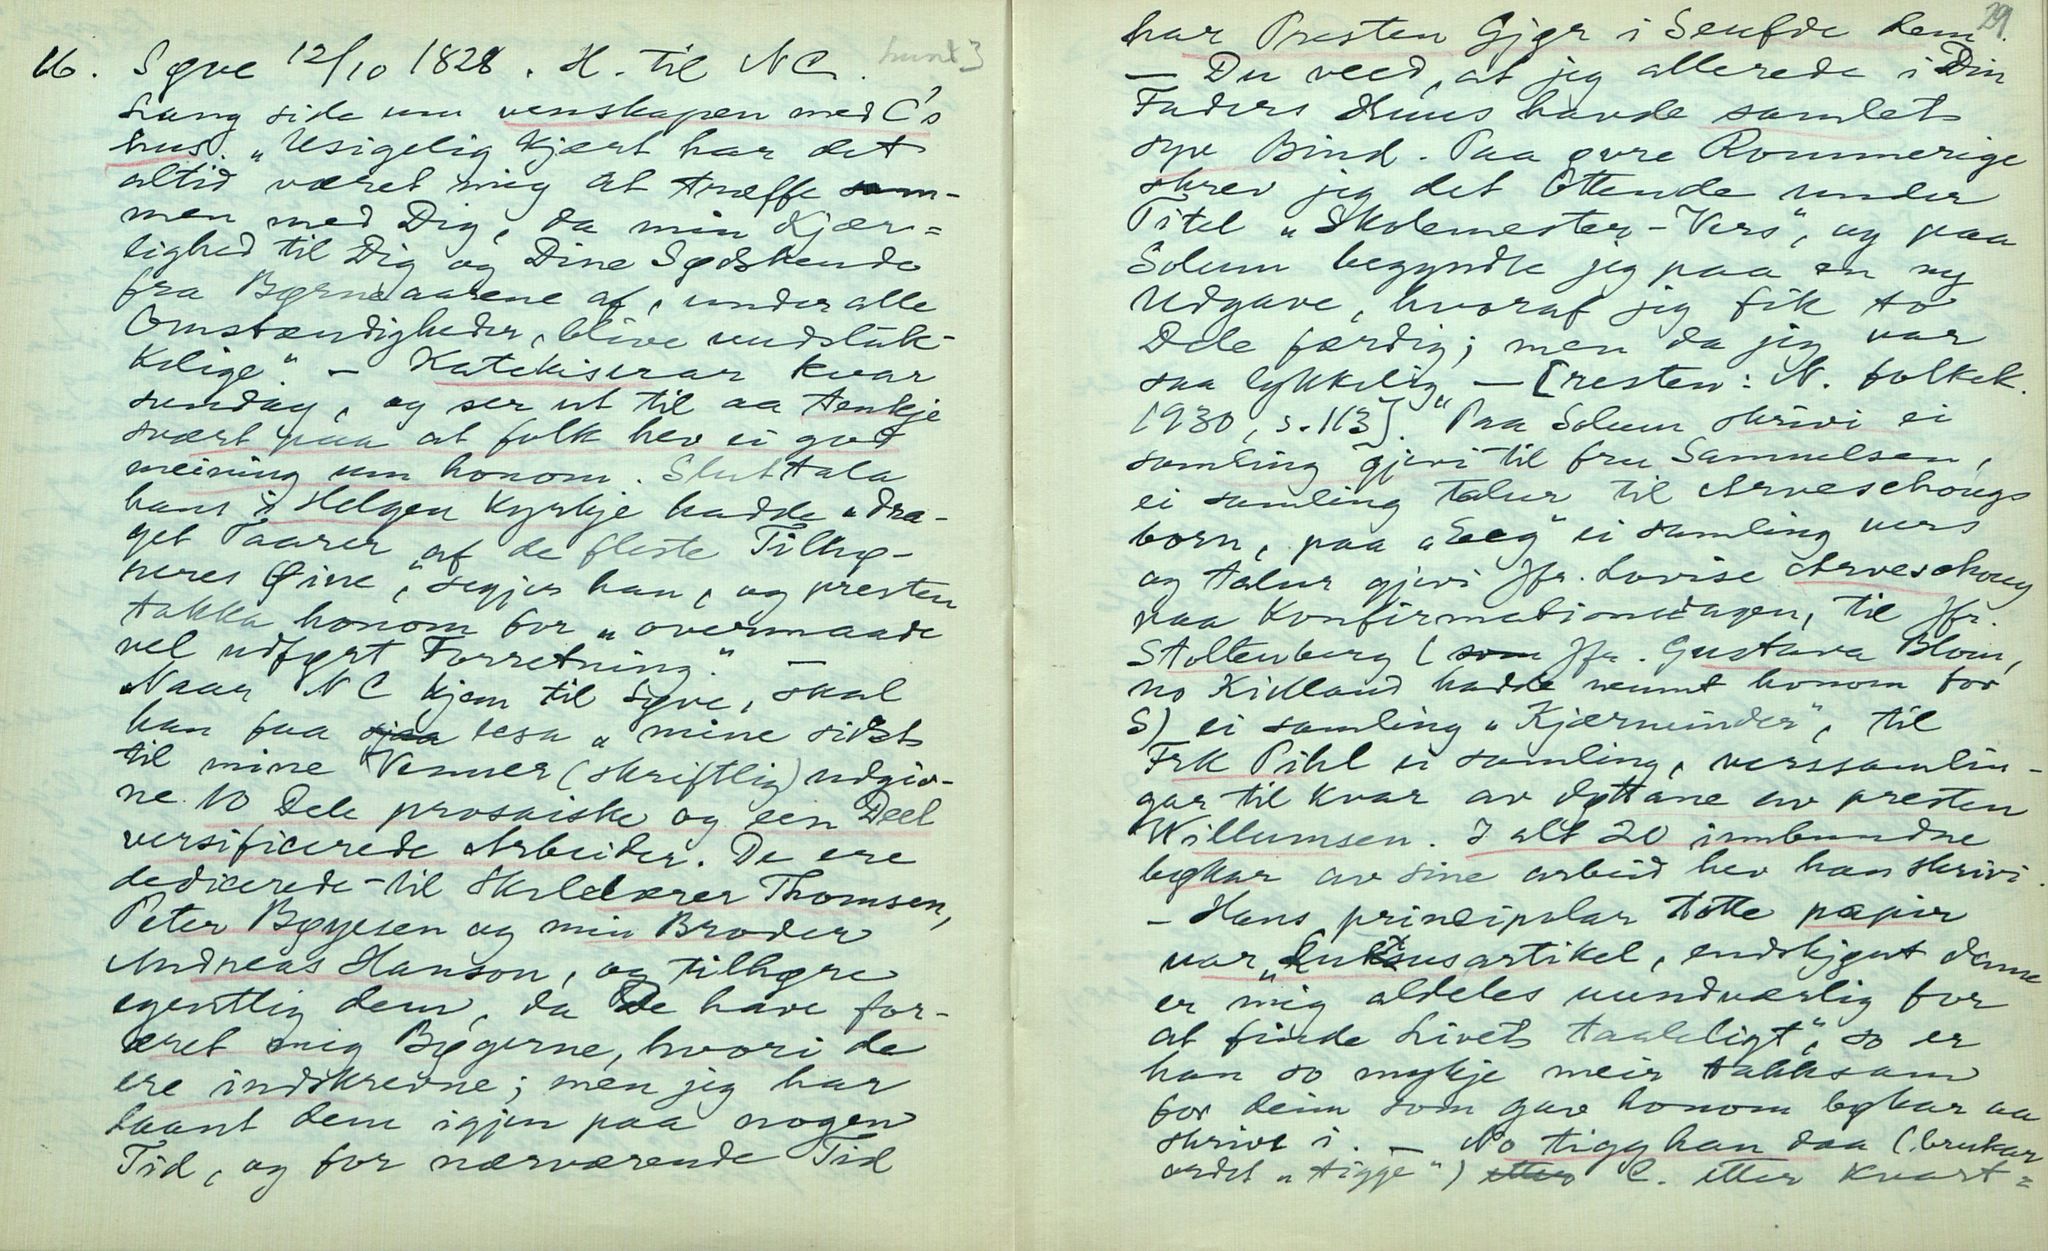 16. Søve 12/10 1828. H. til NC.
Lang side um venskapen med C's
hus. "Usigelig kjært har det
altid været mig at træffe sam-
men med Dig, da min Kjær=
lighed til Dig og Dine Sødskende
fra Børneaarene af, under alle
Omstændigheder, blive uudsluk-
kelige." - Katekiserar kvar
sundag, og ser ut til aa tenkje
svært paa at folk hev ei god
meining um honom. Sluttala
hans i Helgen kyrkje hadde "dra-
get Taarer af de fleste Tilhø-
reres Øine", segjer han, og presten
takka honom for "overmaade
vel udført Forretning." -
Naar NC kjem til Søve, skal
han faa sjaa lesa "mine sidst
til mine Venner (skriftlig) udgiv-
ne 10 Dele prosaiske og een Deel
versificerede Arbeider. De ere
dedicerede til Skolelærer Thomsen,
Peter Bøyesen og min Broder
Andreas Hanson, og tilhøre
egentlig dem, da De have for-
æret mig Bøgerne, hvori de
ere indskrevne; men jeg har
laant dem igjen paa nogen
Tid, og for nærværende Tid
29.
har Presten Gjør i Seufde dem.
- Du veed, at jeg allerede i Din
Faders Huus havde samlet
syv Bind. Paa øvre Rommerige
skrev jeg det Ottende under
Titel "Skolemester-Vers", og paa
Solum begyndte jeg paa en ny
Udgave, hvoraf jeg fik to
Dele færdig; men da jeg var
saa lykkelig" - [resten: N. folkek.
1930, s. 113]. "Paa Solum skrivi ei
samling gjevi til fru Samuelsen,
ei samling talur til Arveschougs
born, paa "Eeg" ei samling vers
og talur gjevi Jfr. Lovise Arveschoug
paa Konfirmationsdagen, til Jfr.
Stoltenberg (som Jfr. Gustava Blom,
no Kielland hadde nemnt honom for
S) ei samling "Kjærminder", til
Frk Pihl ei samling, verssamlin-
gar til kvar av døttrane av presten
Willumsen. I alt 20 innbundne
bøkar av sine arbeid hev han skrivi.
- Hans principalar totte papir
var "Luksusartikel, endskjønt denne
er mig aldeles uundværlig for
at finde Livet taaleligt", so er
han so mykje meir takksam
for deim som gav honom bøkar aa
skrive i. - No tigg han daa (brukar
ordet "tigge") etter C. etter kvart=